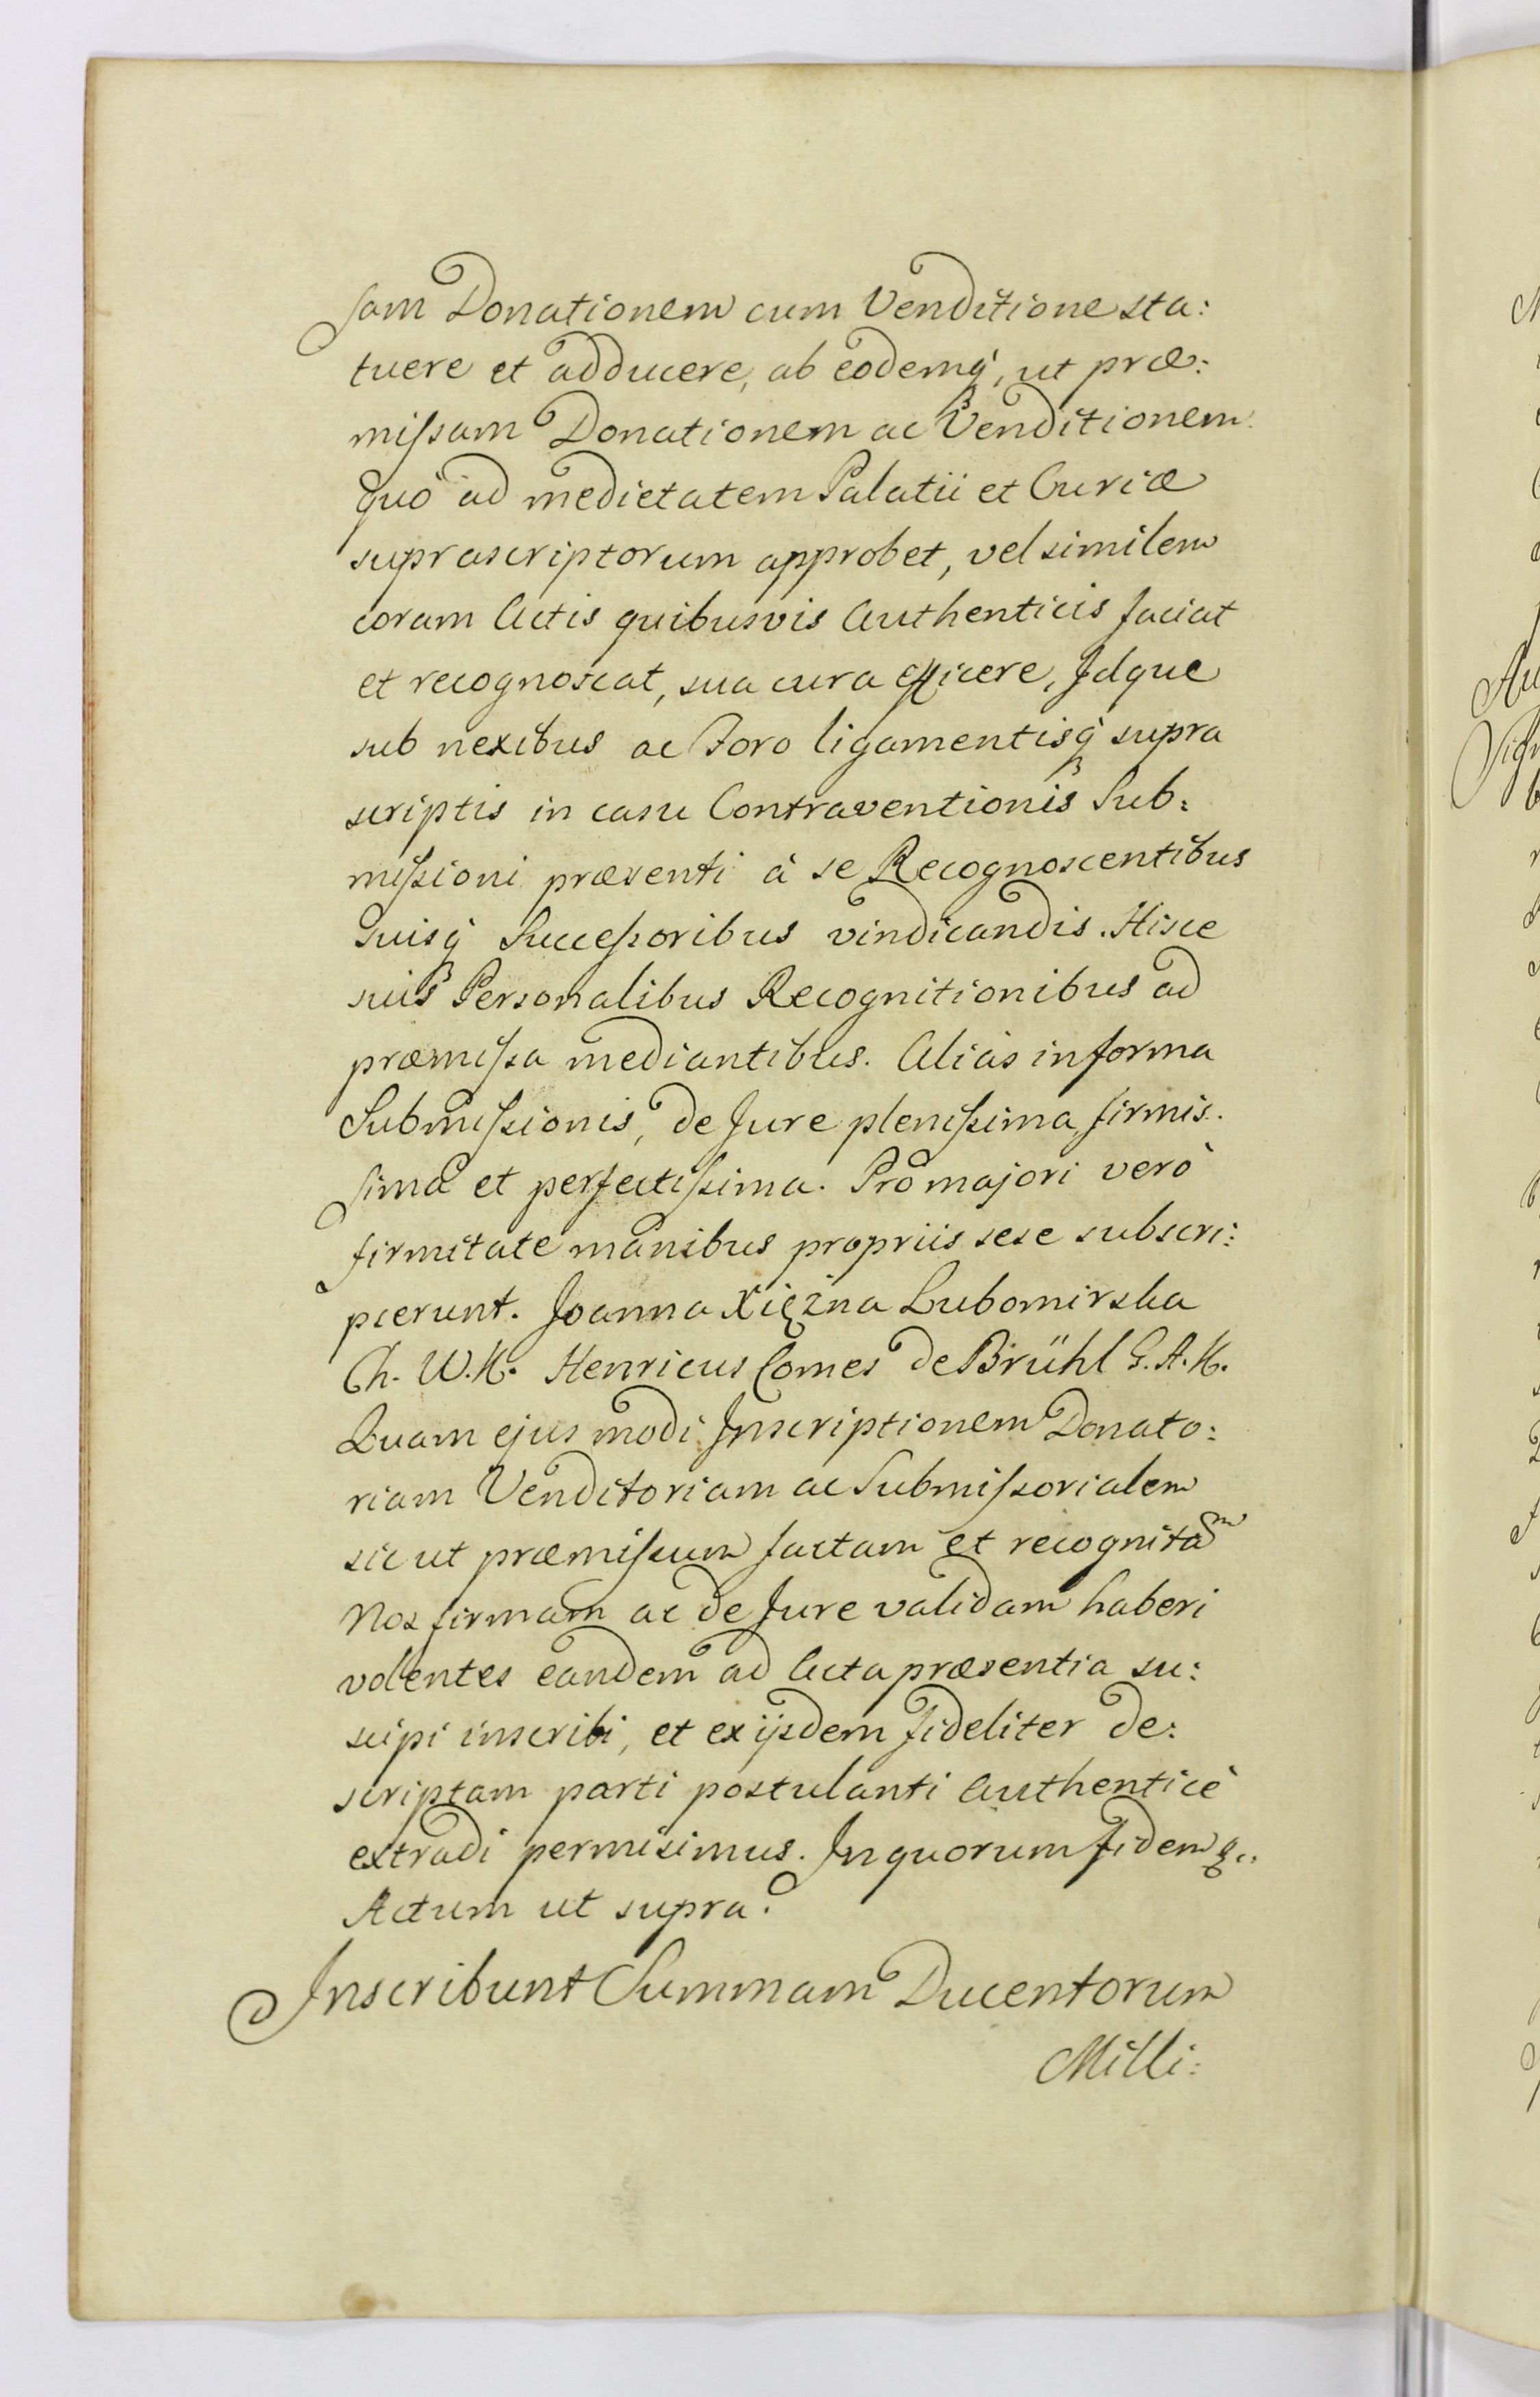 sam Donationem cum Venditione sta:
tuere et adducere, ab eodemq́, ut præ:
missam Donationem ac Venditionem
quò ad medietatem Palatii et Curiæ
suprascriptorum approbet, vel similem
coram Actis quibusvis Authenticis faciat
et recognoscat, sua cura efficere, Idque
sub nexibus ac Foro ligamentisq́ supra
scriptis in casu Contraventionis Sub:
missioni præsenti à se Recognoscentibus
Suisq́ Successoribus vindicandis. Hisce
suis Personalibus Recognitionibus ad
præmissa mediantibus. Aliàs in forma
Submissionis, de Jure plenissima, firmis:
sima et perfectissima. Pro majori verò
firmitate manibus propriis sese subscri:
pserunt. Joanna Xiężna Lubomirska
Ch. W. K. Henricus Comes de Brühl G. A. K.
Quam ejus modi Inscriptionem Donato:
riam Venditoriam ac Submissorialem
sic ut præmissum factam et recognitam
Nos firmam ac de Jure validam haberi
volentes eandem ad Acta præsentia su:
scipi inscribi, et ex ijsdem fideliter de:
scriptam parti postulanti Authenticè
extradi permisimus. In quorum fidem &..
Actum ut supra.
Inscribunt Summam Ducentorum
Milli: